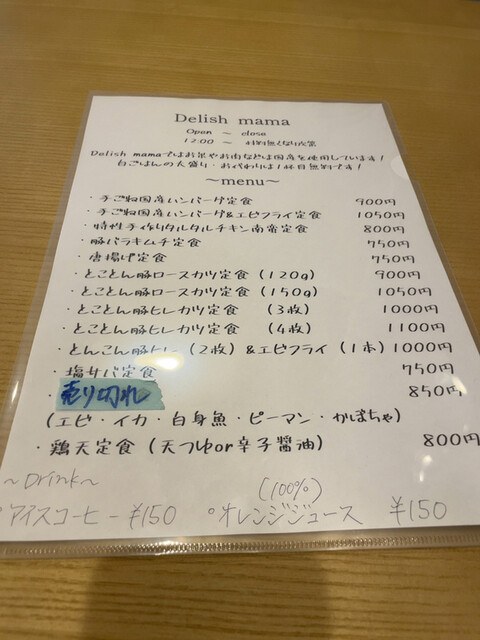 Delish mama
Open ～ close
12:00 ～ 材料無くなり次第
Delish mamaではお米やお肉などは国産を使用しています!
白ごはんの大盛り・お代わりは1杯目無料です!
～menu～
・手ごね国産ハンバーグ定食 900円
・手ごね国産ハンバーグ&エビフライ定食 1050円
・特性手作りタルタルチキン南蛮定食 800円
・豚バラキムチ定食 750円
・唐揚げ定食 750円
・とことん豚ロースカツ定食 (120g) 900円
・とことん豚ロースカツ定食 (150g) 1050円
・とことん豚ヒレカツ定食 (3枚) 1000円
・とことん豚ヒレカツ定食 (4枚) 1100円
・とんこん豚ヒレ (2枚) &エビフライ (1本) 1000円
・塩サバ定食 750円
・売り切れ 850円
(エビ・イカ・白身魚・ピーマン・かぼちゃ)
・鶏天定食 (天つゆor辛子醤油) 800円
～Drink～
(100%)
°アイスコーヒー ¥150 °オレンジジュース ¥150